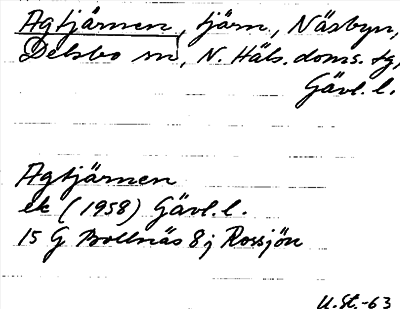 Agtjärnen, tjärn, Näsbyn,
Delsbo sn, N. Häls. doms. tg,
Gävl. l.
Agtjärnen
ek (1958) Gävl. l.
15 G Bollnäs 8j Rossjön
U.St.-63